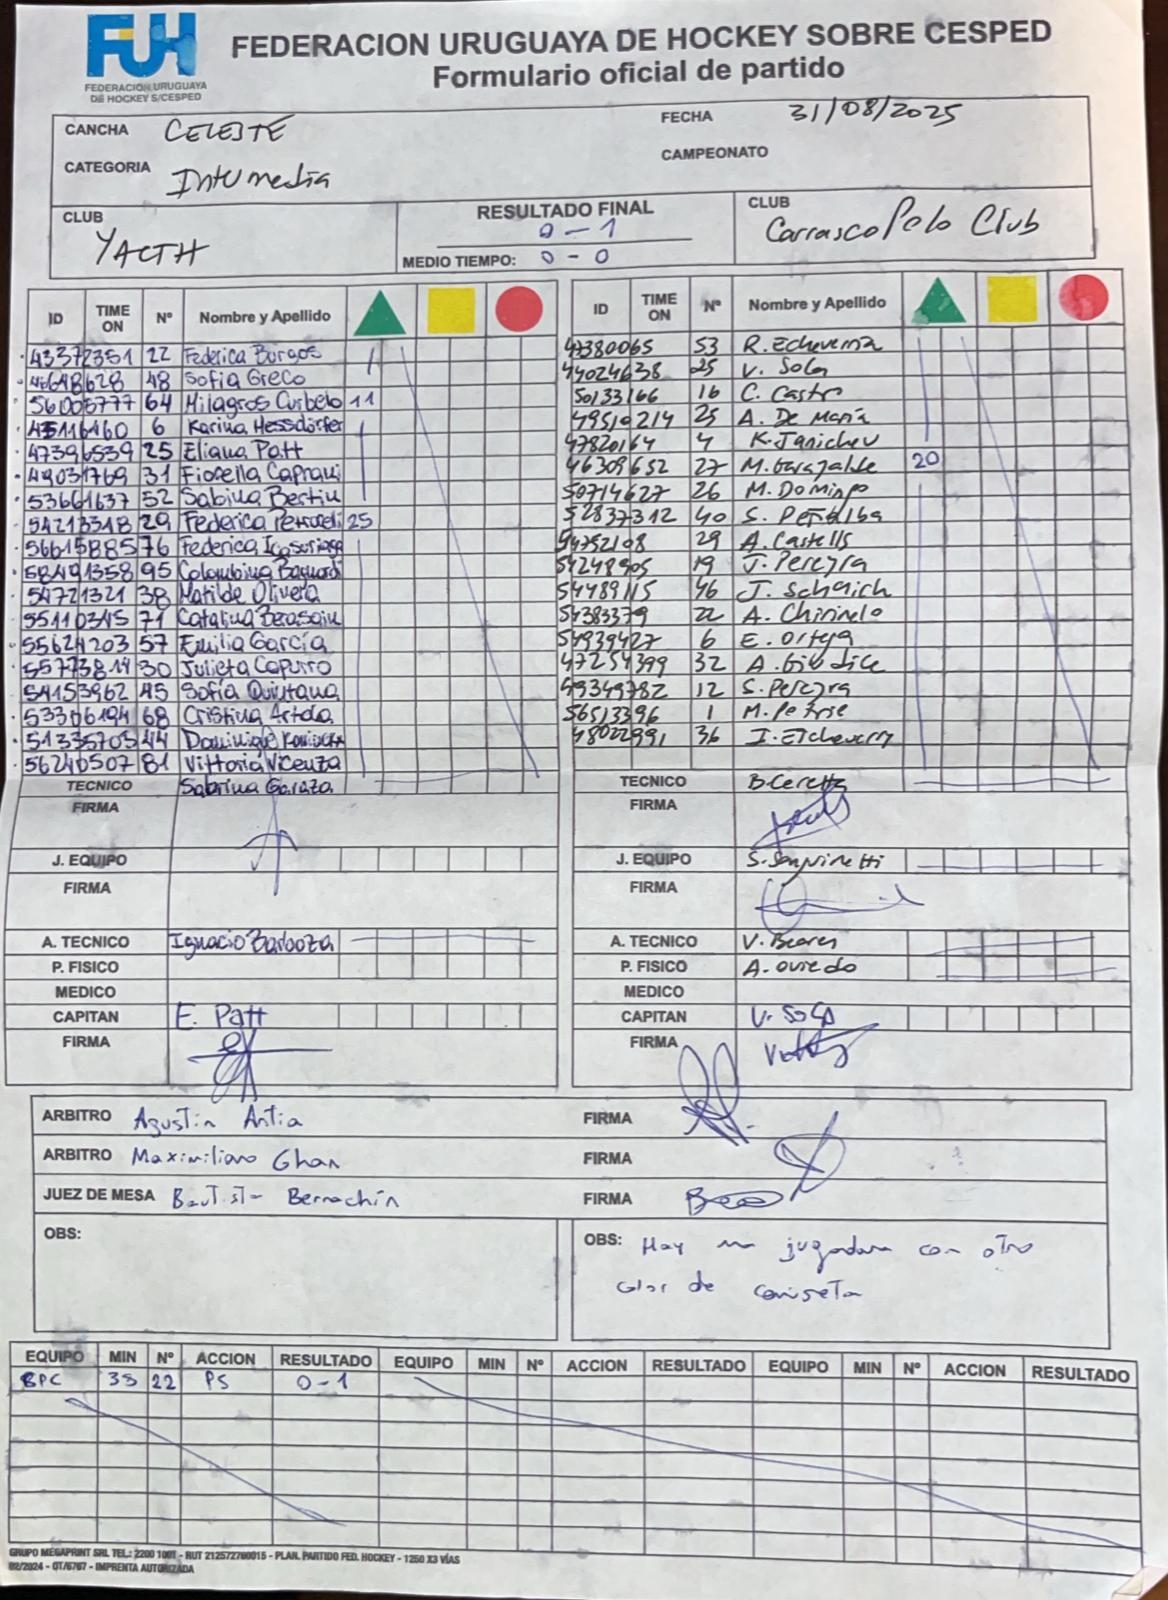 FUH
FEDERACION URUGUAYA
DE HOCKEY S/CESPED
FEDERACION URUGUAYA DE HOCKEY SOBRE CESPED
Formulario oficial de partido
CANCHA CELESTE
FECHA 31/08/2025
CATEGORIA Intermedia
CAMPEONATO
CLUB YACTH
RESULTADO FINAL 0-1
MEDIO TIEMPO: 0-0
CLUB Carrasco Polo Club
ID TIME ON Nº Nombre y Apellido
43372351 22 Federica Burgos
48 Sofia Greco
56005777 64 Milagros Curbelo 11
45116460 6 Karina Hessdörfer
47396539 25 Eliana Patt
49031769 31 Fiorella Caprani
53661637 52 Sabina Bertin
54213318 29 Federica 25
56615885 76 Federica
58491358 95 Colombina
54721321 38 Matilde Olivera
55110345 71 Catalina Berasain
55624203 57 Emilia García
55773814 30 Julieta Capurro
54153962 45 Sofía Quintana
53306194 68 Cristina Artola
51335703 44 Dominique
56240507 81 Vittoria Vicenza
TECNICO Sabrina Garaza
FIRMA
J. EQUIPO
FIRMA
A. TECNICO Ignacio Barboza
P. FISICO
MEDICO
CAPITAN E. Patt
FIRMA
ID TIME ON Nº Nombre y Apellido
47380065 53 R. Echeverria
44024638 25 V. Sola
50133166 16 C. Castro
49519214 25 A. De María
47820164 4 K. Janichev
46309652 27 M. Garagalde 20
50714627 26 M. Domingo
52837312 40 S. Peñalba
54752108 29 A. Castells
54248905 19 J. Pereyra
54489115 46 J. Schaich
54383379 22 A. Chirinelo
54939427 6 E. Ortega
47254399 32 A. Giudice
49349782 12 S. Pereyra
56513396 1 M. Pearse
48022991 36 I. Etcheverry
TECNICO B. Ceretta
FIRMA
J. EQUIPO S. Sanguinetti
FIRMA
A. TECNICO V. Beares
P. FISICO A. Oviedo
MEDICO
CAPITAN V. Sola
FIRMA
ARBITRO Agustin Antia FIRMA
ARBITRO Maximiliano Ghan FIRMA
JUEZ DE MESA Bautista Bernachín FIRMA
OBS:
OBS: Hay una jugadora con otro
color de camiseta
EQUIPO MIN Nº ACCION RESULTADO EQUIPO MIN Nº ACCION RESULTADO EQUIPO MIN Nº ACCION RESULTADO
CPC 35 22 PS 0-1
GRUPO MEGAPRINT SRL TEL.: 2200 1001 - RUT 212572760015 - PLAN. PARTIDO FED. HOCKEY - 1250 X3 VÍAS
02/2024 - OT/6767 - IMPRENTA AUTORIZADA